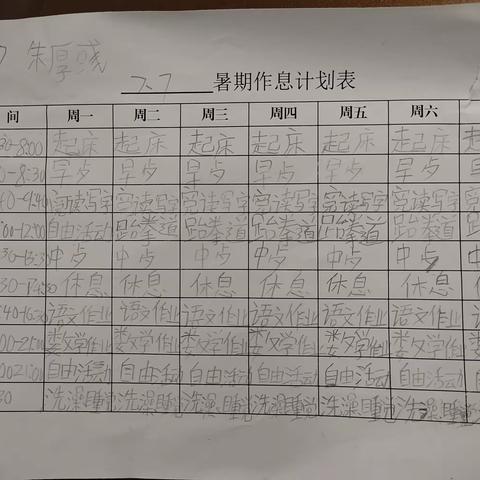 7 朱厚彧
7-7 暑期作息计划表
间 周一 周二 周三 周四 周五 周六
30-8:00 起床 起床 起床 起床 起床 起床
0-8:30 早歺 早歺 早歺 早歺 早歺 早歺
40-9:40 阅读写字 阅读写字 阅读写字 阅读写字 阅读写字 阅读写字
:00-12:00 自由活动 跆拳道 跆拳道 跆拳道 跆拳道 跆拳道
:30-13:3 中歺 中歺 中歺 中歺 中歺 中歺
休息 休息 休息 休息 休息 休息
:40-16:30 语文作业 语文作业 语文作业 语文作业 语文作业 语文作业
数学作业 数学作业 数学作业 数学作业 数学作业 数学作业
自由活动 自由活动 自由活动 自由活动 自由活动 自由活动
30 洗澡睡觉 洗澡睡觉 洗澡睡觉 洗澡睡觉 洗澡睡觉 洗澡睡觉